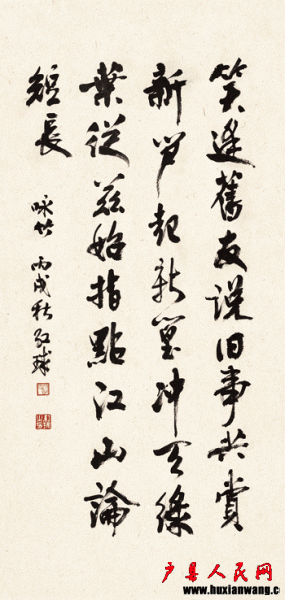 笑逢舊友説旧事共賞
新笋起新篁冲天緑
葉從兹始指點江山論
短長
咏竹 丙戌秋
户县人民网
www.huxianwang.c